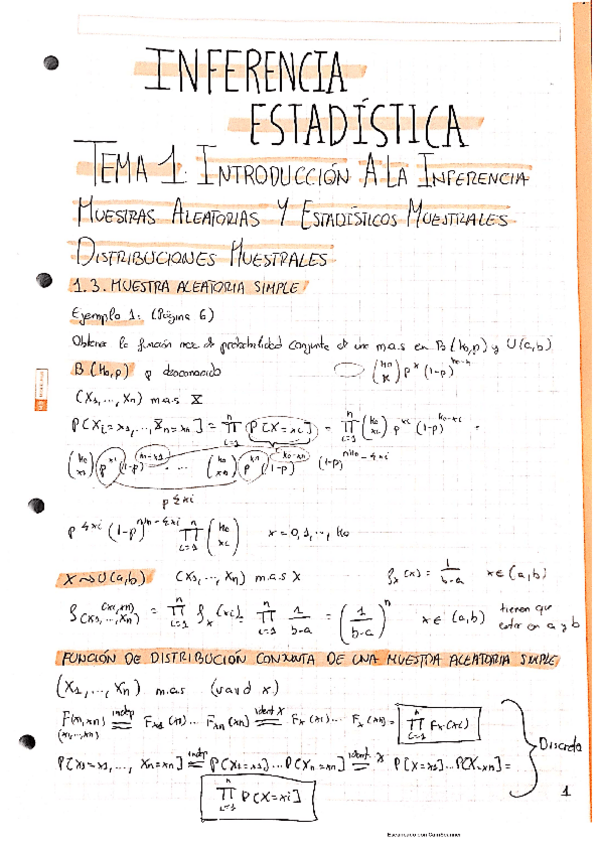 INFERENCIA
ESTADÍSTICA
TEMA 1. INTRODUCCIÓN A LA INFERENCIA
MUESTRAS ALEATORIAS Y ESTADÍSTICOS MUESTRALES
DISTRIBUCIONES MUESTRALES
1.3. MUESTRA ALEATORIA SIMPLE
Ejemplo 1: (Página 6)
Obtener la función masa de probabilidad conjunta de una m.a.s en B(k₀,p) y U(a,b)
B(k₀,p) p desconocido
(X₁,...,Xₙ) m.a.s X
P[X₁=x₁,...,Xₙ=xₙ] = ∏ᵢ₌₁ⁿ P[X=xᵢ] = ∏ᵢ₌₁ⁿ (k₀ xᵢ) p^xᵢ (1-p)^(k₀-xᵢ) =
p^Σxᵢ
x=0,1,...,k₀
X~>U(a,b) (X₁,...,Xₙ) m.a.s X fₓ(x) = 1/(b-a) x∈(a,b)
= ∏ᵢ₌₁ⁿ fₓ(xᵢ) = ∏ᵢ₌₁ⁿ 1/(b-a) = (1/(b-a))ⁿ x∈(a,b) tienen que estar en a y b
FUNCIÓN DE DISTRIBUCIÓN CONJUNTA DE UNA MUESTRA ALEATORIA SIMPLE
(X₁,...,Xₙ) m.a.s
F(x₁,xₙ) (x₁,...,xₙ) =indep Fₓ₁(x₁)... Fₓₙ(xₙ) =ident X Fₓ(x₁)... Fₓ(xₙ) = ∏ᵢ₌₁ⁿ Fₓ(xᵢ)
P[X₁=x₁,..., Xₙ=xₙ] =indep P[X₁=x₁]...P[Xₙ=xₙ] =ident. X P[X=x₁]...P[X=xₙ] =
Discreta
∏ᵢ₌₁ⁿ P[X=xᵢ]
1
Escaneado con CamScanner